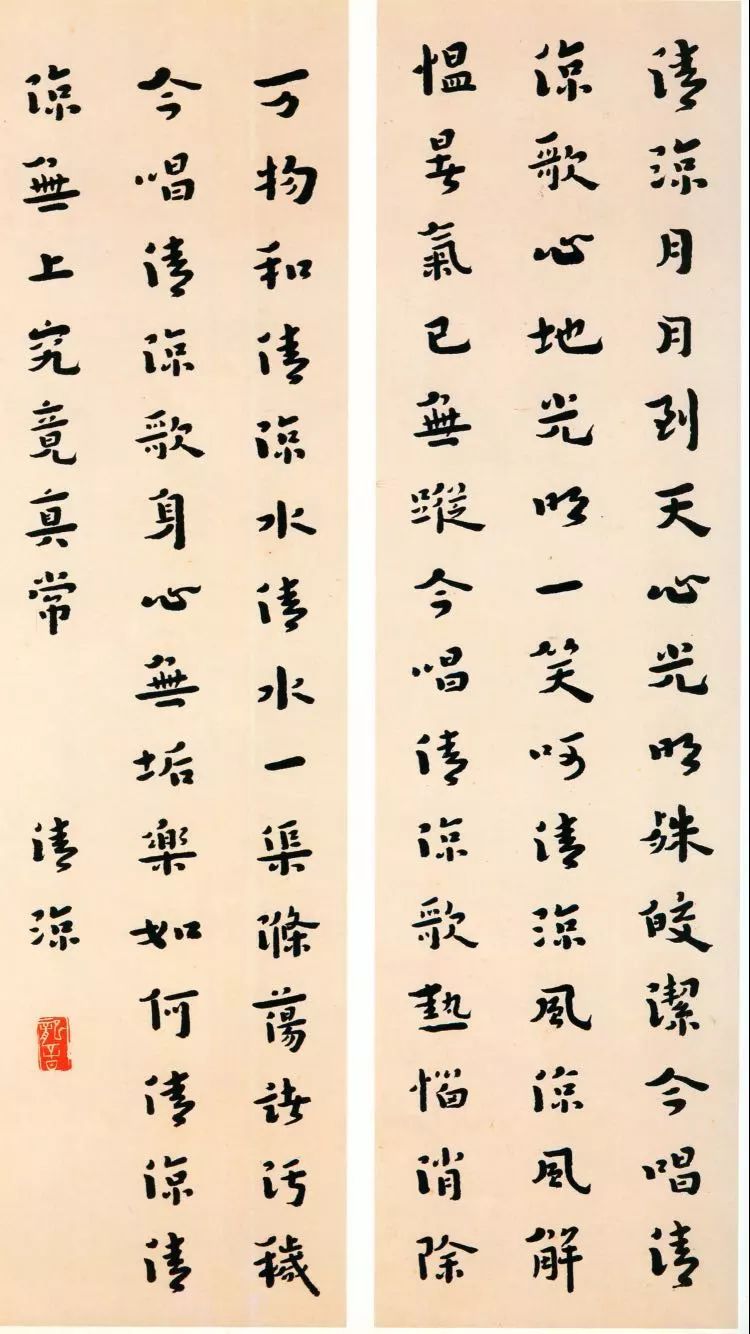 清涼月月到天心光明殊皎潔今唱清
涼歌心地光明一笑呵清涼風涼風解
慍暑氣已無蹤今唱清涼歌熱惱消除
万物和清涼水清水一渠滌蕩諸污穢
今唱清涼歌身心無垢樂如何清涼清
涼無上究竟真常
清涼